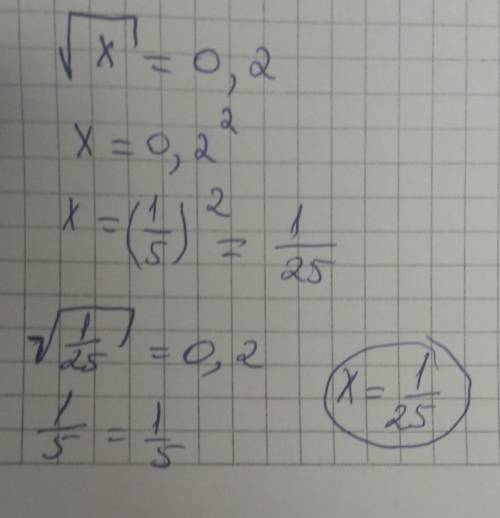 √x = 0,2
x = 0,2²
x = (1/5)² = 1/25
√(1/25) = 0,2
1/5 = 1/5
x = 1/25